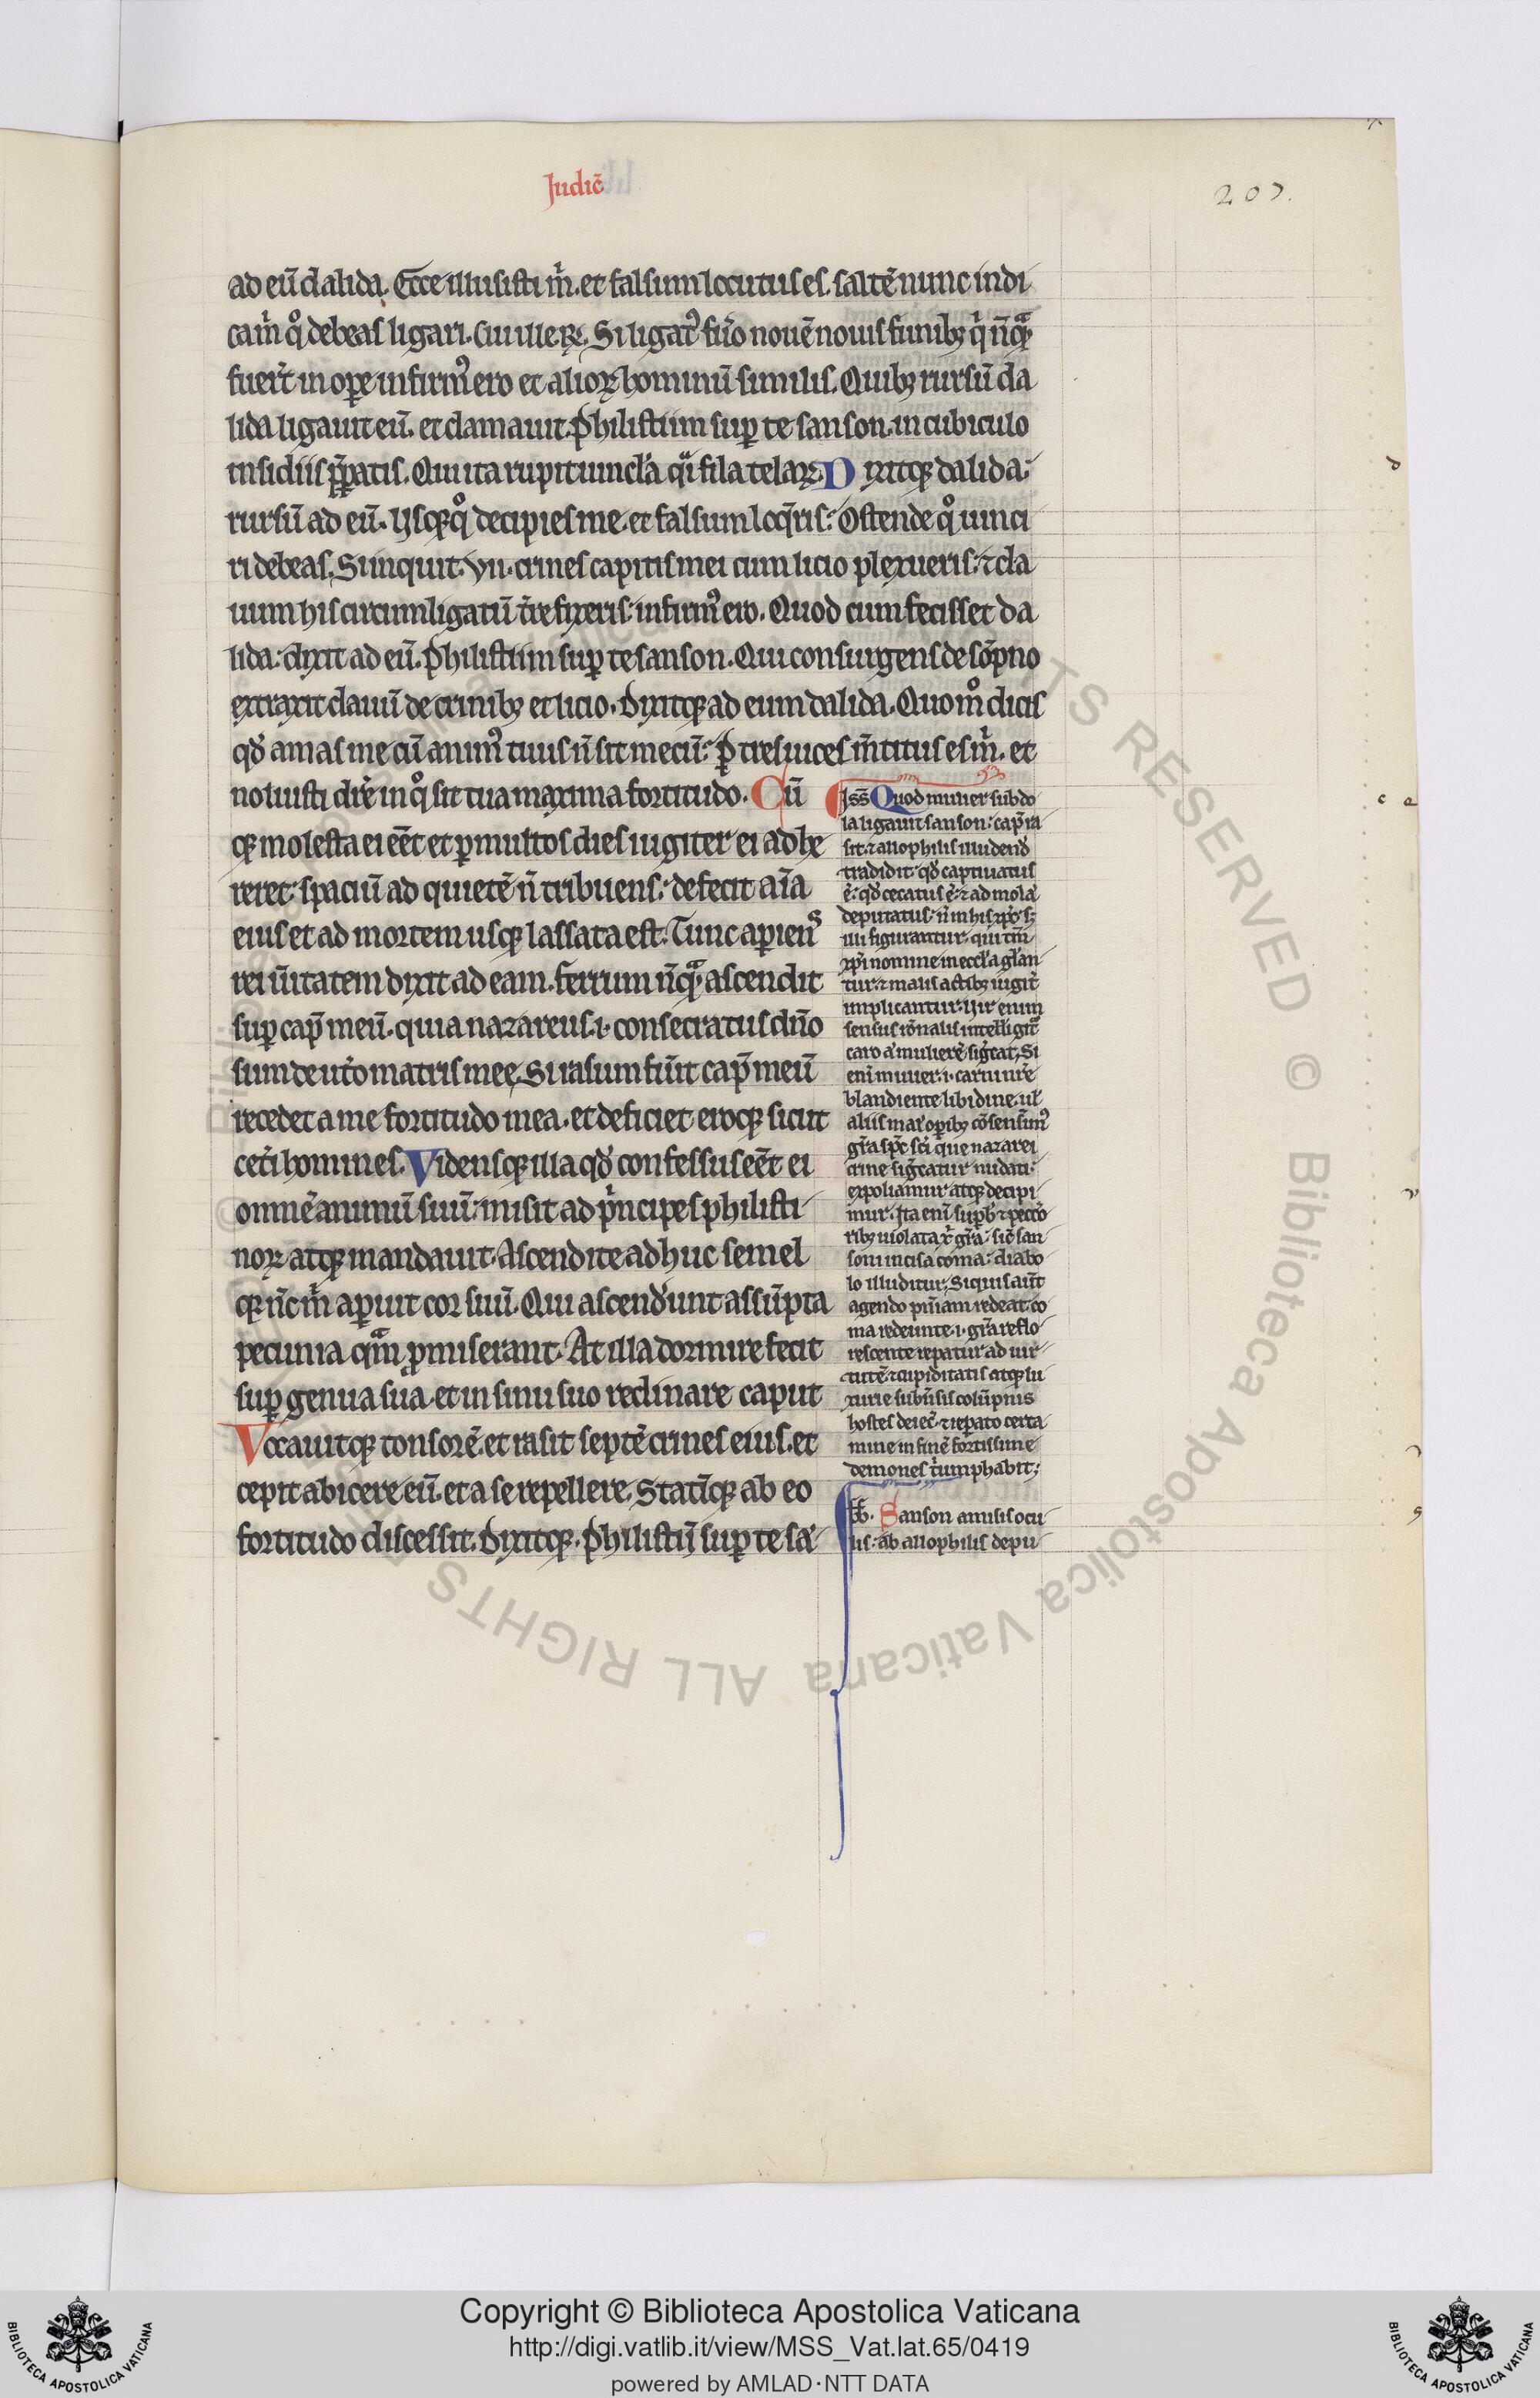 Judic̄
207.
ad eū dalida. Ecce illusisti m̄. et falsum locutus es. saltē nunc indi
ca m̄ q̊ debeas ligari. Cui ille ꝶ. Si ligatꝰ fu͛o nouē nouis funibꝫ q̄ nūqᷓ
fuer̄t in oꝑe infirmꝰ ero et alioꝝ hominū similis. Quibꝫ rursū da
lida ligauit eū. et clamauit. Philistiim suꝑ te sanson. in cubiculo
insidiis p̄paratis. Qui ita rupit uincl̄a qᷓi fila telaꝝ. Dixitqꝫ dalida
rursū ad eū. Usqꝫ q̊ decipies me. et falsum loq̄ris. Ostende q̊ uinci
ri debeas. Si inquit. vii. crines capitis mei cum licio plexueris. ⁊ cla
uum his circumligatū t̄re fixeris. infirmꝰ ero. Quod cum fecisset da
lida. dixit ad eū. Philistiim suꝑ te sanson. Qui consurgens de sōpno
extraxit clauū de crinibꝫ et licio. Dixitqꝫ ad eum dalida. Quom̊ dicis
qd̄ amas me cū animꝰ tuus n̄ sit mecū. ꝑ tres uices m̄titus es m̄. et
noluisti dicēr in q̊ sit tua maxima fortitudo. Cū
qꝫ molesta ei eēt et ꝑ multos dies iugiter ei adhe
reret. spaciū ad quietē n̄ tribuens. defecit aīa
eius et ad mortem usqꝫ lassata est. Tunc aperiens
rei ūitatem dixit ad eam. ferrum nūqᷓ ascendit
suꝑ cap̄ meū. quia nazareus .i. consecratus dn̄o
sum de ut͛o matris mee. Si rasum fu͛it cap̄ meū
recedet a me fortitudo mea. et deficiet eroqꝫ sicut
cet͛i homines. Vidensqꝫ illa qd̄ confessus eēt ei
omnē animū suū. misit ad p̄ncipes philisti
noꝝ atqꝫ mandauit. Ascendite adhuc semel
qꝫ n̄c m̄ aꝑuit cor suū. Qui ascend͛unt assūpta
pecunia qᷓm ꝓmiserant. At illa dormire fecit
suꝑ genua sua. et in sinu suo reclinare caput
Vocauitqꝫ tonsorē. et rasit septē crines eius. et
cepit abicere eū. et a se repellere. Statīqꝫ ab eo
fortitudo discessit. Dixitqꝫ. Philistiĳ suꝑ te sā
Jss̄ Quod mulier subdo
la ligauit sanson. cap̄ ra
sit ⁊ allophilis illudend̄
tradidit. qd̄ captiuatus
ē. qd̄ cecatus ē. ⁊ ad molā
deputatus. n̄ in his xp̄c. sꝫ
illi figurantur. qui tm̄
xp̄i nomine in eccl̄a gl̄an
tur. ⁊ malis actibꝫ iugit͛
implicantur. Uir enim
sensus rōnalis intelligit͛
caro ā mulierē sīgcat. Si
enī mulier .i. carni nr̄e
blandiente libidine. ul̄
aliis mal̄ oꝑibꝫ cōsensimꝰ
gr̄a spc̄ sc̄i que nazarei
crine sīgcatur nudati.
expoliamur atqꝫ decipi
mur. Ita enī suꝑb̄ ⁊ peccō
ribꝫ uiolata x̄ gr̄a. sic̄ san
soni incisa coma. diabo
lo illuditur. Si quis aūt
agendo pn̄iam redeat. co
ma redeunte .i. gr̄a reflo
rescente reꝑatur ad uir
tutē. ⁊ cupiditatis atqꝫ lu
xurie subūsis colūpnis
hostes deiec̄. ⁊ reꝑato certa
mine in finē fortissime
demones t͛umphabit.
Sanson amissis ocu
lis. ab allophilis depu
Copyright © Biblioteca Apostolica Vaticana
http://digi.vatlib.it/view/MSS_Vat.lat.65/0419
powered by AMLAD·NTT DATA